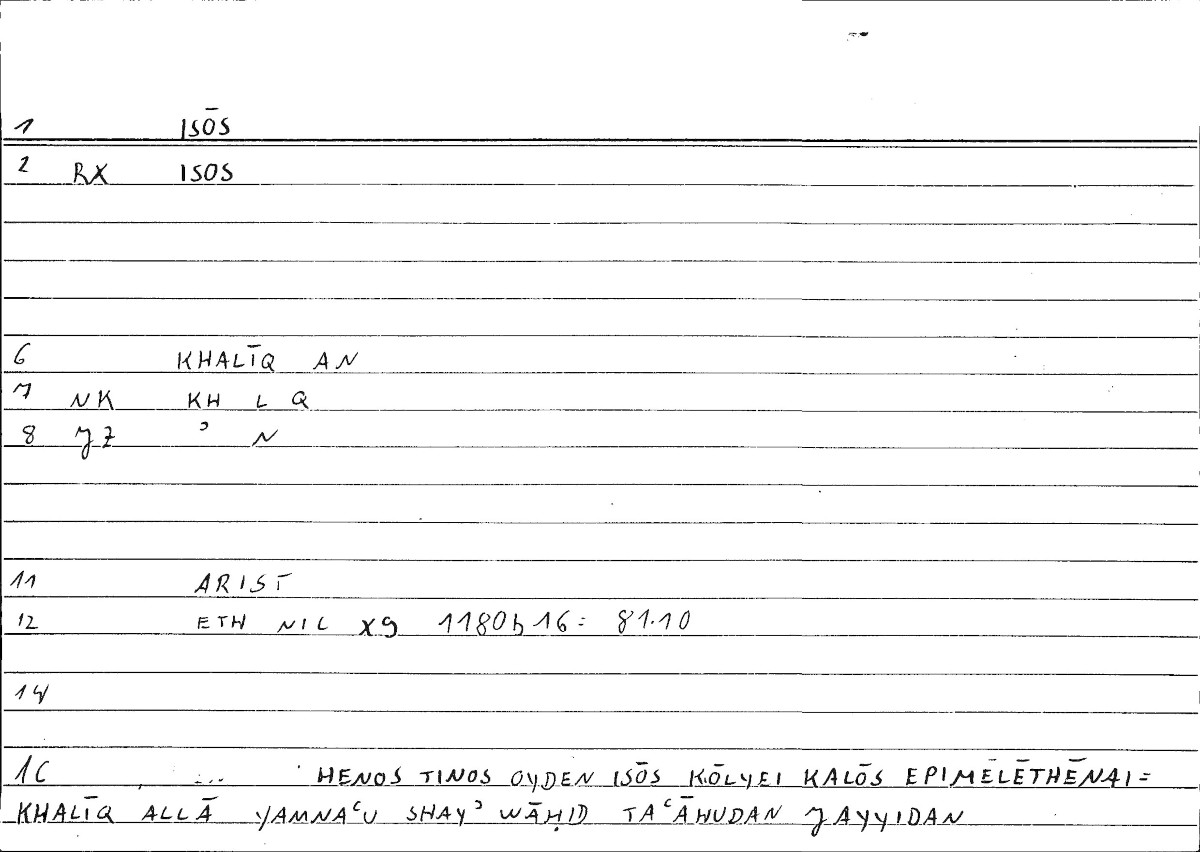 1 ISŌS
2 RX ISOS
6 KHALĪQ AN
7 NK KH L Q
8 JZ ʾ N
11 ARIST
12 ETH NIC X9 1180b16: 81.10
14
1C ... HENOS TINOS OYDEN ISŌS KŌLYEI KALŌS EPIMELĒTHĒNAI=
KHALĪQ ALLĀ YAMNAʿU SHAYʾ WĀḤID TAʿĀHUDAN JAYYIDAN